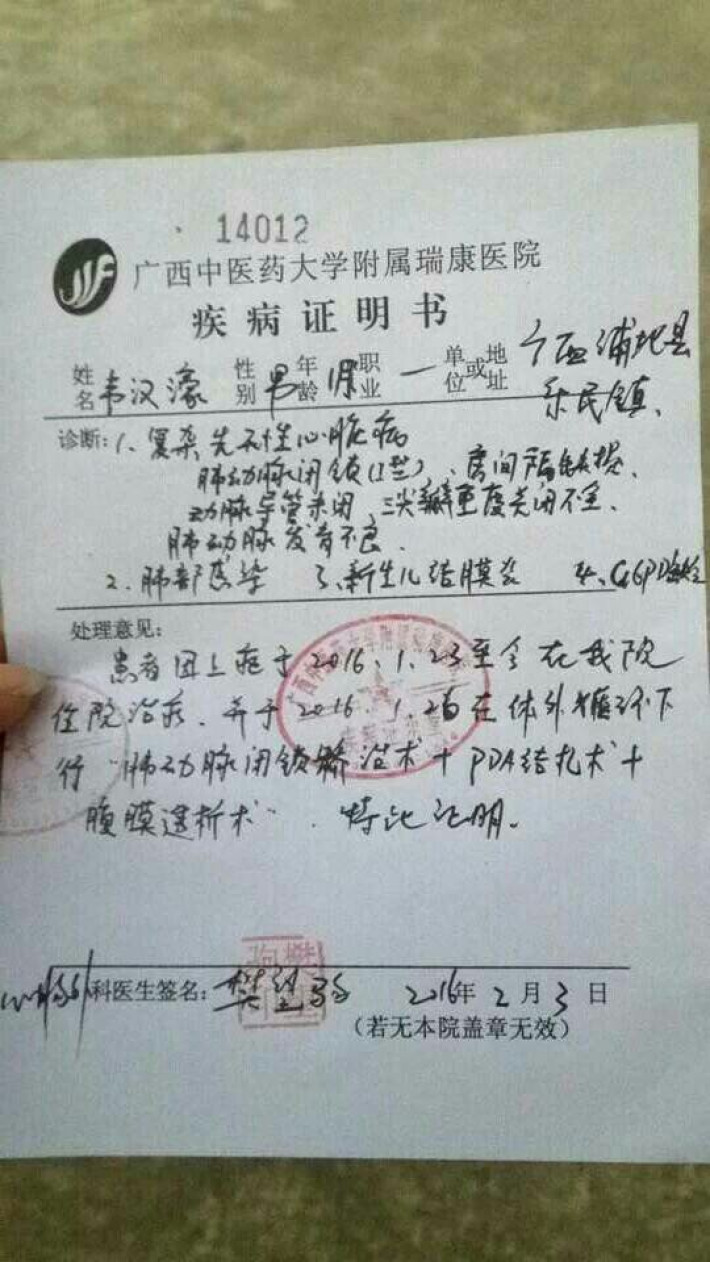 14012
广西中医药大学附属瑞康医院
疾病证明书
姓名 韦汉濠 性别 男 年龄 1月 职业 一 单位或地址 广西浦北县
乐民镇、
诊断：1、复杂先天性心脏病
肺动脉闭锁(I型)、房间隔缺损、
动脉导管未闭、三尖瓣重度关闭不全、
肺动脉发育不良.
2、肺部感染 3、新生儿结膜炎 4、G6PD缺乏
处理意见：
患者因上症于2016.1.23至今在我院
住院治疗.并于2016.1.26在体外循环下
行“肺动脉闭锁矫治术+PDA结扎术+
腹膜透析术”.特此证明.
科医生签名： 2016年2月3日
（若无本院盖章无效）